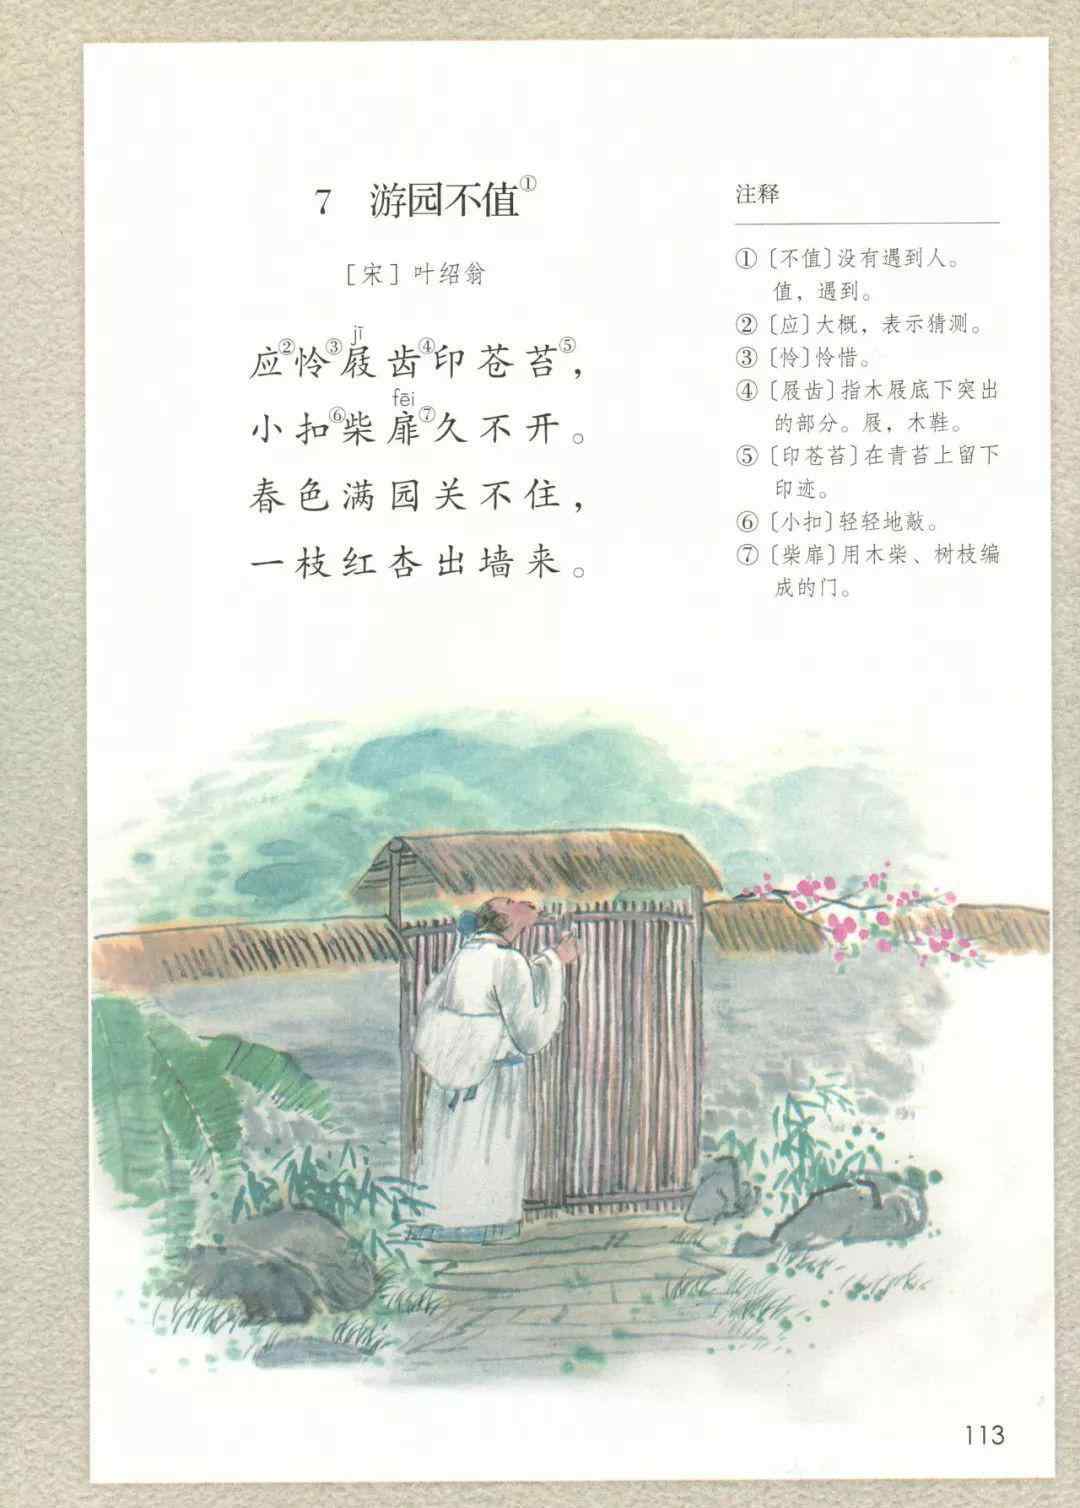 7 游园不值①
［宋］叶绍翁
jī
应②怜③屐齿④印苍苔⑤，
fēi
小扣⑥柴扉⑦久不开。
春色满园关不住，
一枝红杏出墙来。
注释
①〔不值〕没有遇到人。
值，遇到。
②〔应〕大概，表示猜测。
③〔怜〕怜惜。
④〔屐齿〕指木屐底下突出
的部分。屐，木鞋。
⑤〔印苍苔〕在青苔上留下
印迹。
⑥〔小扣〕轻轻地敲。
⑦〔柴扉〕用木柴、树枝编
成的门。
113